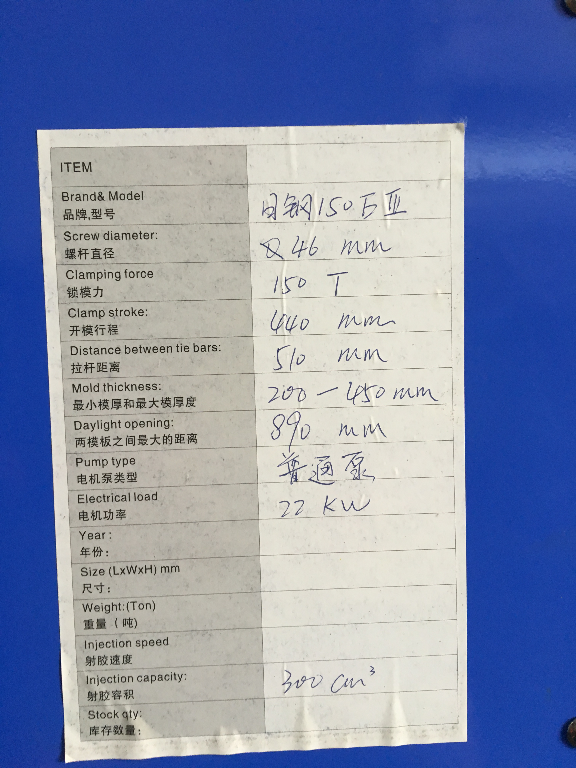 ITEM
Brand& Model
品牌,型号
日钢150EⅡ
Screw diameter:
螺杆直径
46 mm
Clamping force
锁模力
150 T
Clamp stroke:
开模行程
440 mm
Distance between tie bars:
拉杆距离
510 mm
Mold thickness:
最小模厚和最大模厚度
200 — 450 mm
Daylight opening:
两模板之间最大的距离
890 mm
Pump type
电机泵类型
普通泵
Electrical load
电机功率
22 KW
Year :
年份：
Size (LxWxH) mm
尺寸：
Weight:(Ton)
重量（吨)
Injection speed
射胶速度
Injection capacity:
射胶容积
300 cm³
Stock qty:
库存数量：